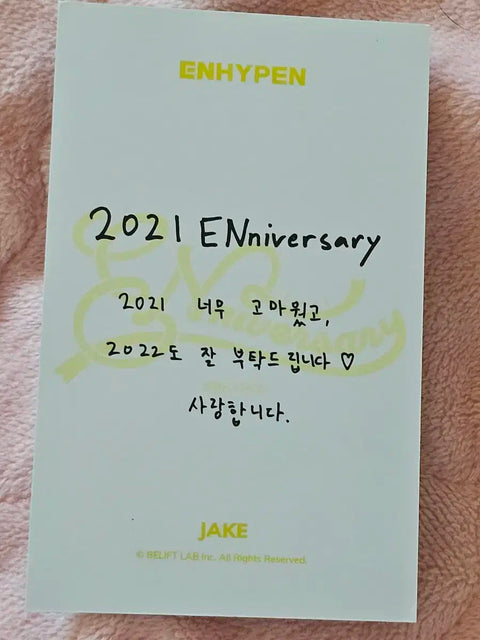 ENHYPEN
2021 ENniversary
ENniversary
2021 너무 고마웠고,
2022도 잘 부탁드립니다 ♡
사랑합니다.
JAKE
© BELIFT LAB Inc. All Rights Reserved.